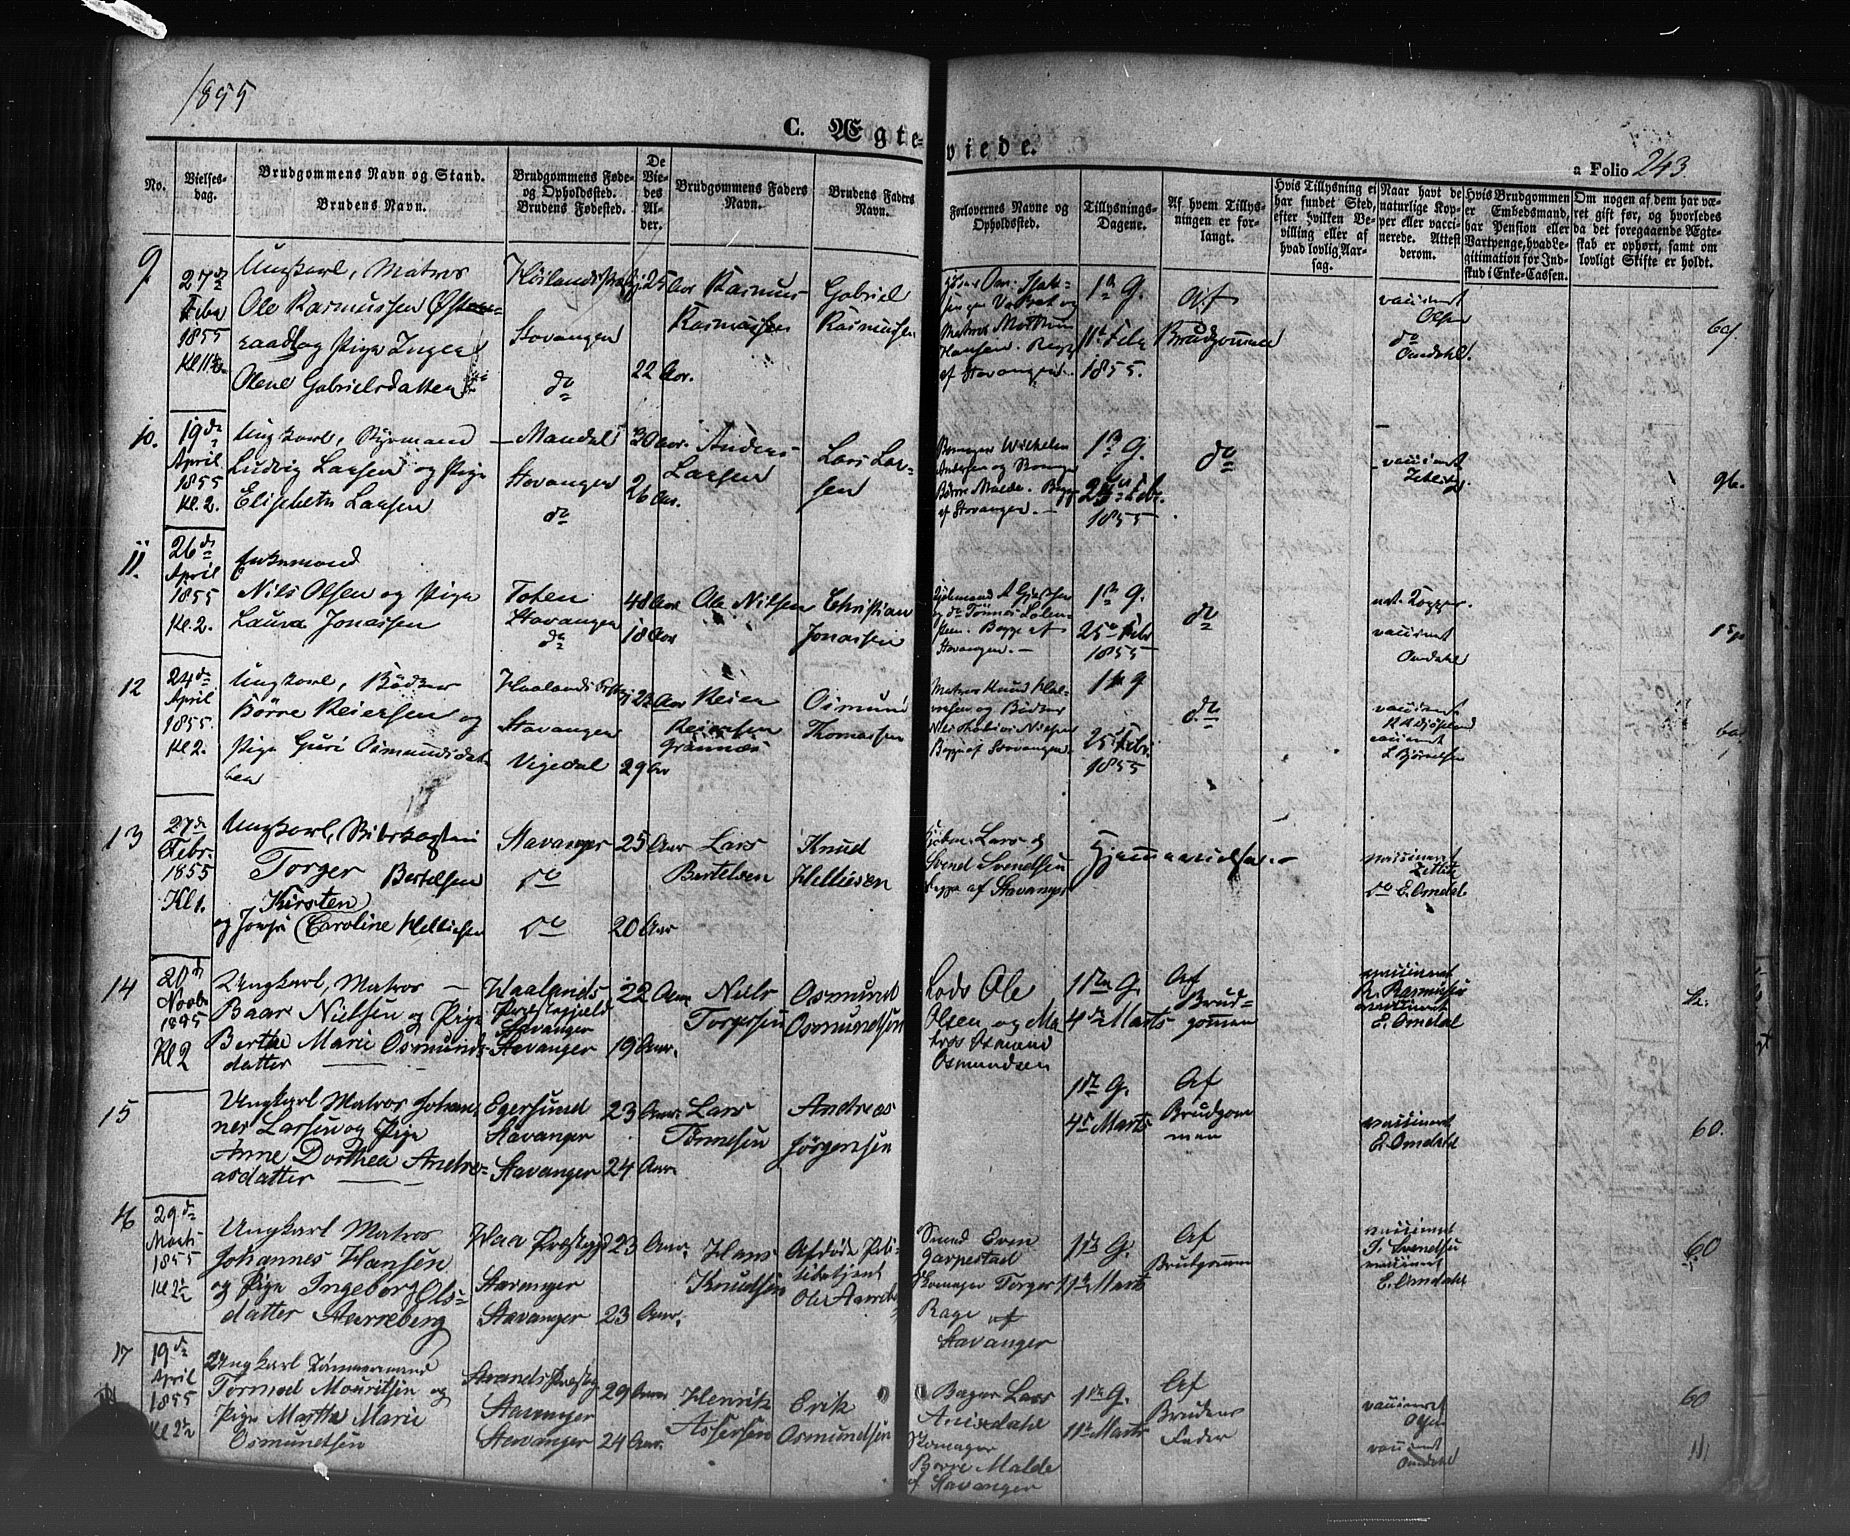 1855
C. Ægte-
viede.
a Folio 243
No.
Vielses-
dag.
Brudgommens Navn og Stand.
Brudens Navn.
Brudgommens Føde-
og Opholdssted.
Brudens Fødested.
De
Vie-
des
Al-
der.
Brudgommens Faders
Navn.
Brudens Faders
Navn.
Forlovernes Navne og
Opholdssted.
Tillysnings-
Dagene.
Af hvem Tillys-
ningen er for-
langt.
Hvis Tillysning ei
har fundet Sted,
efter hvilken Be-
villing eller af
hvad lovlig Aar-
sag.
Naar havt de
naturlige Kop-
per eller vacci-
nerede. Attest
derom.
Hvis Brudgommen
er Embedsmand,
har Pension eller
Vartpenge, hvad Le-
gitimation for Ind-
skud i Enke-Cassen.
Om nogen af dem har væ-
ret gift før, og hvorledes
da det foregaaende Ægte-
skab er ophørt, samt om
lovligt Skifte er holdt.
9
27de
Febr
1855
Ungkarl, Matros
Ole Rasmussen
raadt og Pige Inger
Olene Gabrielsdatter
Stavanger
do
25 Aar
22 Aar.
Rasmus
Rasmussen
Gabriel
Rasmussen
Matros
Hansen. Begge
af Stavanger.
1ste G.
11te Febr
1855.
Af
Brudgommen
vaccineret
Olsen
do
Omdahl.
60
10.
19de
April
1855
Kl. 2.
Ungkarl, Styrmand
Ludvig Larsen og Pige
Elisabeth Larsen
Mandal
Stavanger
do
30 Aar.
26 Aar.
Anders
Larsen
Lars Lar-
sen
Malde. Begge
af Stavanger.
1ste G.
Febr.
1855
do
vaccineret
11.
26de
April
1855
Kl. 2.
Enkemand
Nils Olsen og Pige
Laura Jonassen
Toten
Stavanger
do
48 Aar
18 Aar
Ole Nilsen
Christian
Jonassen
Begge af
Stavanger.
1ste G.
25de Febr
1855
do
nat. Kopper.
vaccineret
Omdahl
12
24de
April
1855.
Kl 2.
Ungkarl, Bödker
Börre Reiersen og
Pige Guri Osmundsdat-
ter
Haalands
Stavanger
Vigedal
22 Aar
29 Aar
Reier
Reiersen
Grannes
Osmund
Thomassen
Matros Knud
og Bödker
Begge af Stavanger.
1ste G
25de Febr.
1855
do
vaccineret
vaccineret
13
27de
Febr.
1855
Kl 1.
Ungkarl,
Torger Bertelsen
Kirsten
og Jomfr Caroline Helliesen
Stavanger
do
do
25 Aar
20 Aar
Lars
Bertelsen
Knud
Helliesen
Lars og
Svend Svendsen
Begge af Stavanger
vaccineret
do E. Omdal.
14
20de
Novbr
1895
Kl 2
Ungkarl, Matros
Baar Nielsen og Pige
Berthe Marie Osmunds-
datter
Haalands
Præstegjeld
Stavanger
Stavanger
22 Aar
19 Aar.
Niels
Torgersen
Osmund
Osmundsen
Lods Ole
Olsen og Ma-
tros
Osmundsen
1ste G.
4de Marts
Af
Brud-
gommen
vaccineret
R. Rasmussen
vaccineret
E. Omdal
15
Ungkarl Matros Johan-
nes Larsen og Pige
Anne Dorthea Andre-
asdatter
Egersund
Stavanger
Stavanger
23 Aar.
24 Aar
Lars
Tönnesen
Andreas
Jörgensen
1ste G.
4de Marts
Af
Brudgom
men
vaccineret
E. Omdahl
60.
16
29de
Marts
1855
Kl 2
Ungkarl Matros
Johannes Hansen
og Pige Ingeborg Ols-
datter Aarreberg
Haa Præstegjd
Stavanger
Stavanger
23 Aar.
23 Aar.
Hans
Knudsen
Afdöde Poli-
titibetjent
Smed Even
Garpestad
Skomager Torger
Rage af
Stavanger
1ste G.
11te Marts
Af
Brudgommen
vaccineret
Svendsen
vaccineret
E. Omdahl
60
17
19de
April
1855
Kl 2
Ungkarl Tömmermand
Tormod Mouritsen og
Pige Marthe Marie
Osmundsen
Strands Præsteg
Stavanger
Stavanger
29 Aar
24 Aar.
Henrik
Assersen
Erik
Osmundsen
Bager Lars
Skomager
Börre Malde
af Stavanger
1ste G.
11te Marts
Af
Brudens
Fader
vaccineret
Olsen
vaccineret
Omdahl
60